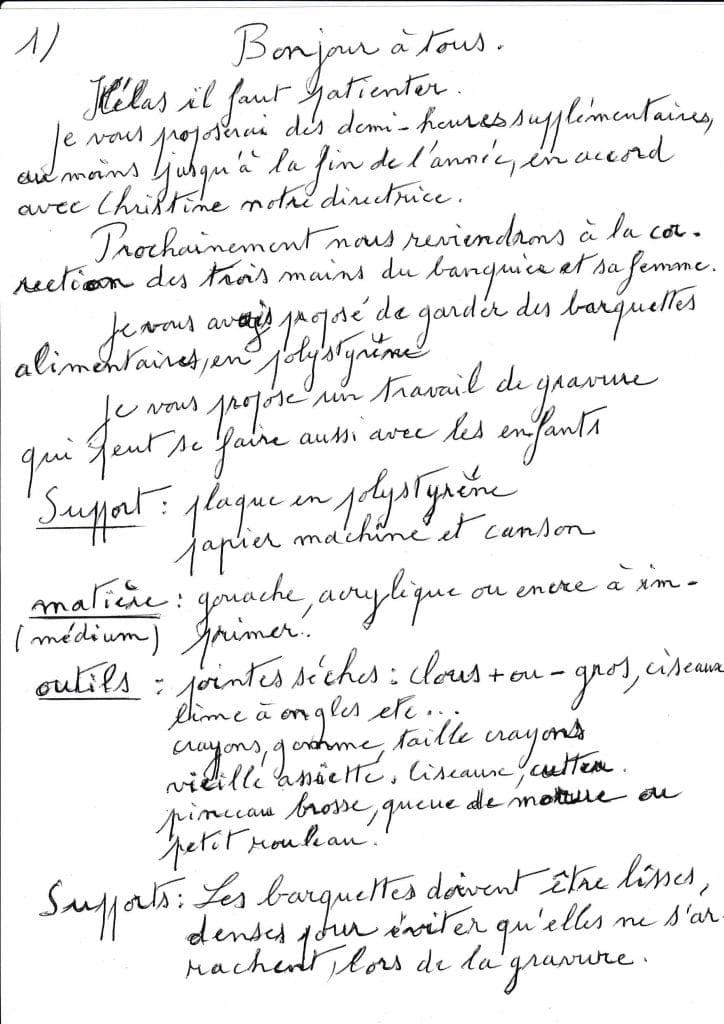 1)
Bonjour à tous.
Hélas il faut patienter.
Je vous proposerai des demi-heures supplémentaires,
au moins jusqu'à la fin de l'année, en accord
avec Christine notre directrice.
Prochainement nous reviendrons à la cor-
rection des trois mains du banquier et sa femme.
Je vous avais proposé de garder des barquettes
alimentaires, en polystyrène
Je vous propose un travail de gravure
qui peut se faire aussi avec les enfants
Support : plaque en polystyrène
papier machine et canson
matière : gouache, acrylique ou encre à im-
(médium) primer.
outils : pointes sèches : clous + ou - gros, ciseaux
lime à ongles etc...
crayons, gomme, taille crayons
vieille assiette. Ciseaux, cutter.
pinceau brosse, queue de morue ou
petit rouleau.
Supports : Les barquettes doivent être lisses,
denses pour éviter qu'elles ne s'ar-
rachent, lors de la gravure.